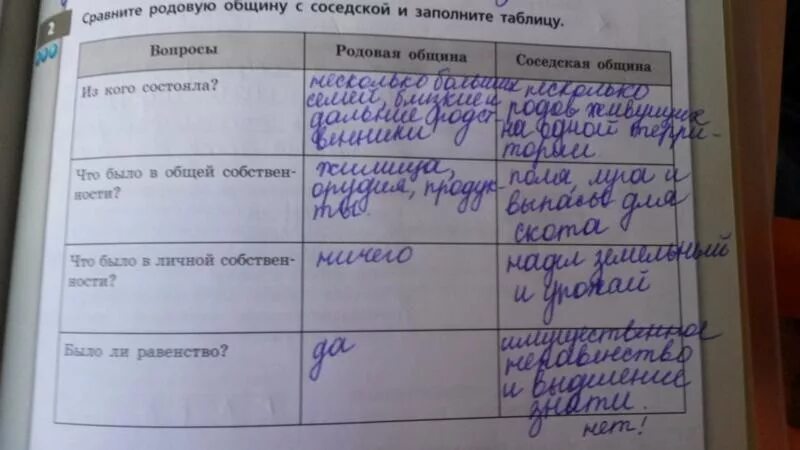 2
Сравните родовую общину с соседской и заполните таблицу.
Вопросы
Родовая община
Соседская община
Из кого состояла?
несколько больших
семей, близкие и
дальние родст-
венники
несколько
родов живущих
на одной терри-
тории.
Что было в общей собствен-
ности?
жилища,
орудия, продук-
ты.
поля, луга и
выпасы для
скота
Что было в личной собствен-
ности?
ничего
надел земельный
и урожай
Было ли равенство?
да
имущественное
неравинство
и выдиление
знати.
нет!